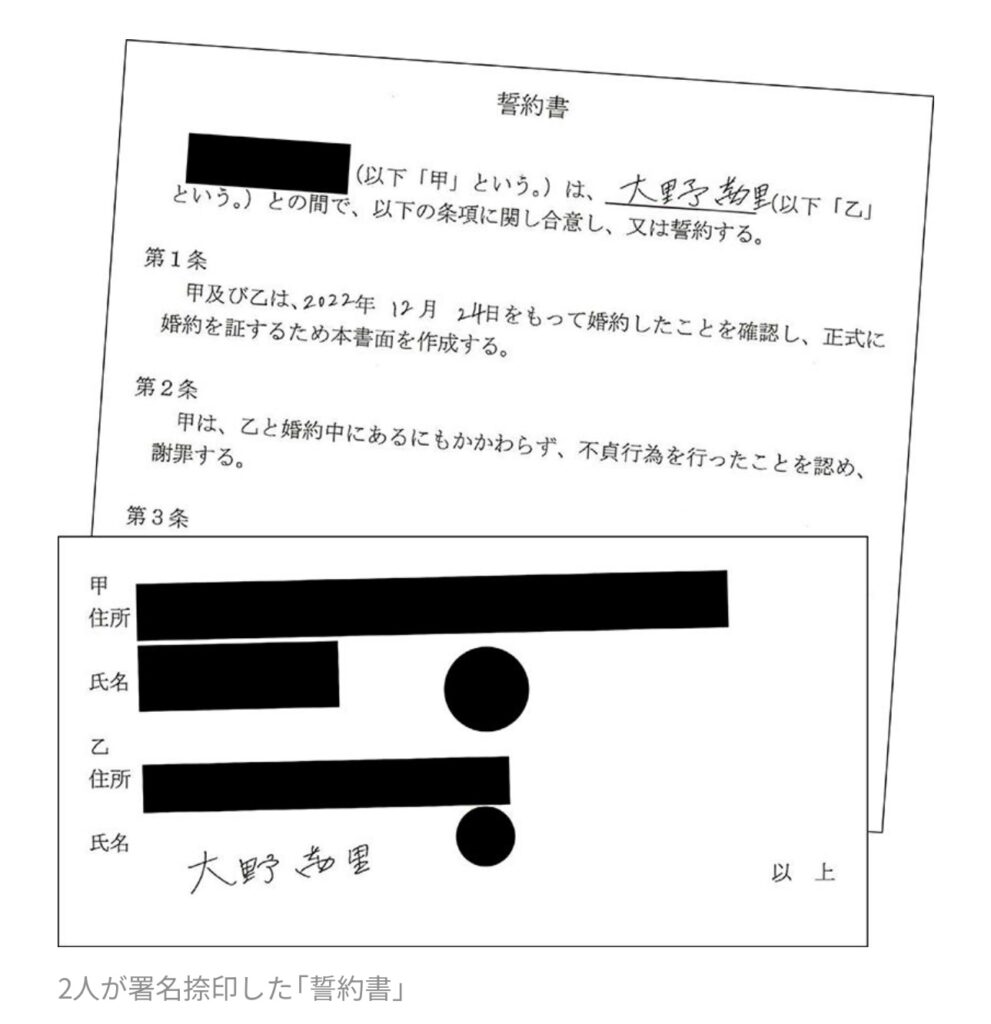 誓約書
(以下「甲」という。)は、大野茜里(以下「乙」
という。)との間で、以下の条項に関し合意し、又は誓約する。
第1条
甲及び乙は、2022年 12月 24日をもって婚約したことを確認し、正式に
婚約を証するため本書面を作成する。
第2条
甲は、乙と婚約中にあるにもかかわらず、不貞行為を行ったことを認め、
謝罪する。
第3条
甲
住所
氏名
乙
住所
氏名
大野茜里
以 上
2人が署名捺印した「誓約書」